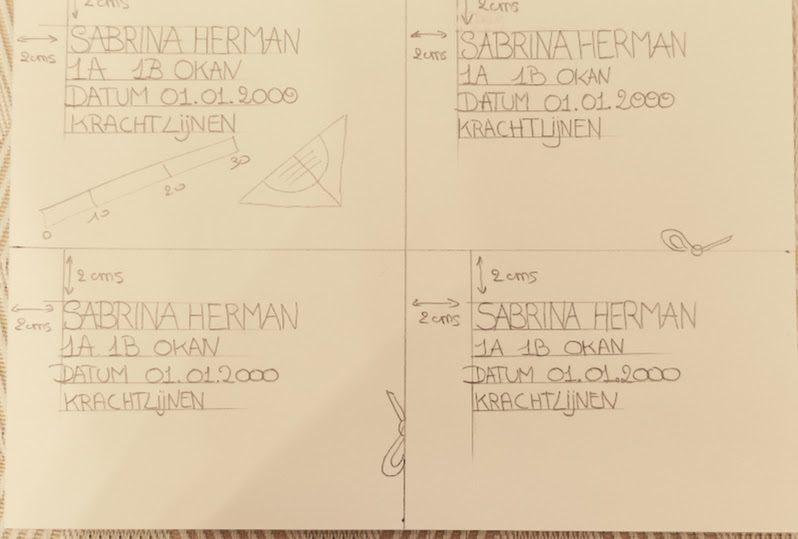 2cms
2cms
SABRINA HERMAN
1A 1B OKAN
DATUM 01.01.2000
KRACHTLIJNEN
0 10 20 30
2cms
2cms
SABRINA HERMAN
1A 1B OKAN
DATUM 01.01.2000
KRACHTLIJNEN
2cms
2cms
SABRINA HERMAN
1A 1B OKAN
DATUM 01.01.2000
KRACHTLIJNEN
2cms
2cms
SABRINA HERMAN
1A 1B OKAN
DATUM 01.01.2000
KRACHTLIJNEN